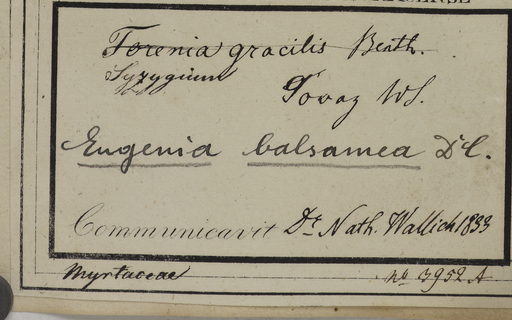 Torenia gracilis Benth.
Syzygium
Tovaz WS.
Eugenia balsamea DC.
Communicavit Dr. Nath. Wallich 1833
Myrtaceae
no 3952 A